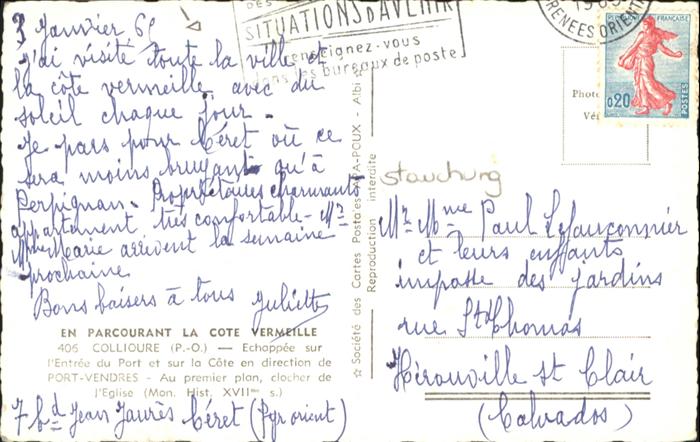 3 Janvier 65
j'ai visité toute la ville et
la côte vermeille avec du
soleil chaque jour -
Je pars pour Céret où ce
sera moins bruyant qu'à
Perpignan. Propriétaires charmants
appartement très confortable - Mr
Mme Marie arrivent la semaine
prochaine
Bons baisers à tous Juliette
EN PARCOURANT LA COTE VERMEILLE
406 COLLIOURE (P.-O.) — Echappée sur
l'Entrée du Port et sur la Côte en direction de
PORT-VENDRES - Au premier plan, clocher de
l'Eglise (Mon. Hist. XVIIme s.)
7 bd Jean Jaurès Céret (Pyr orient)
SITUATIONS D'AVENIR
Renseignez-vous
dans les bureaux de poste
Société des Cartes Postales APA-POUX - Albi
Reproduction interdite
PYRENEES ORIENT
0,20
POSTES
Photo
Vér
stauchung
Mr Mme Paul Lefauconnier
et leurs enfants
impasse des jardins
rue St Thomas
Hérouville St Clair
(Calvados)